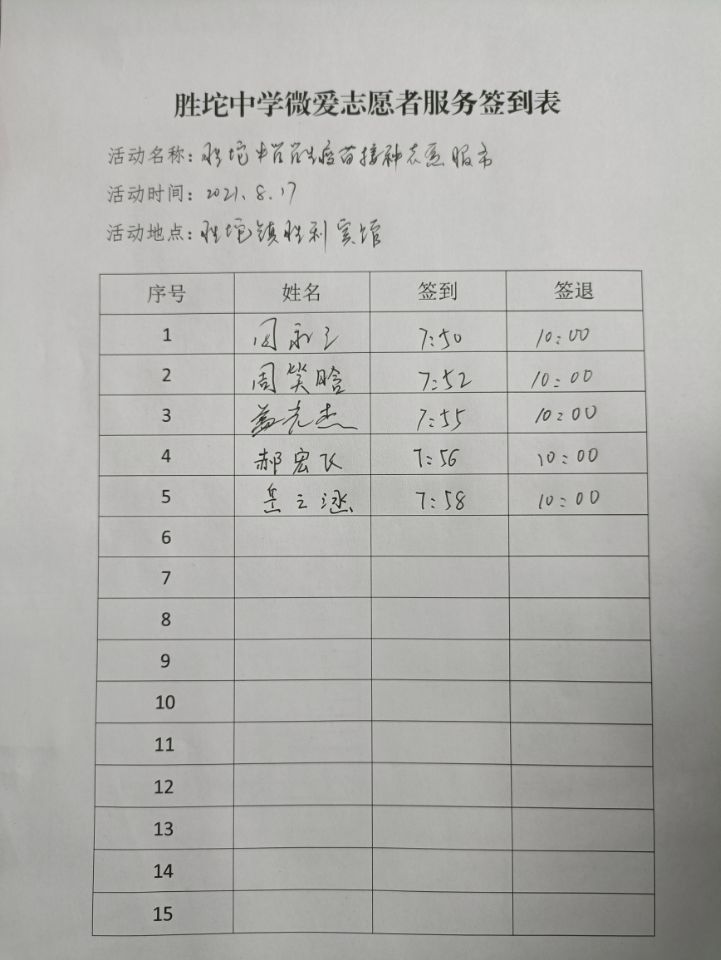 胜坨中学微爱志愿者服务签到表
活动名称：胜坨中学学生疫苗接种志愿服务
活动时间：2021.8.17
活动地点：胜坨镇胜利宾馆
序号 姓名 签到 签退
1 周永 7:50 10:00
2 周笑晗 7:52 10:00
3 盖先杰 7:55 10:00
4 郝宏飞 7:56 10:00
5 岳之 7:58 10:00
6
7
8
9
10
11
12
13
14
15